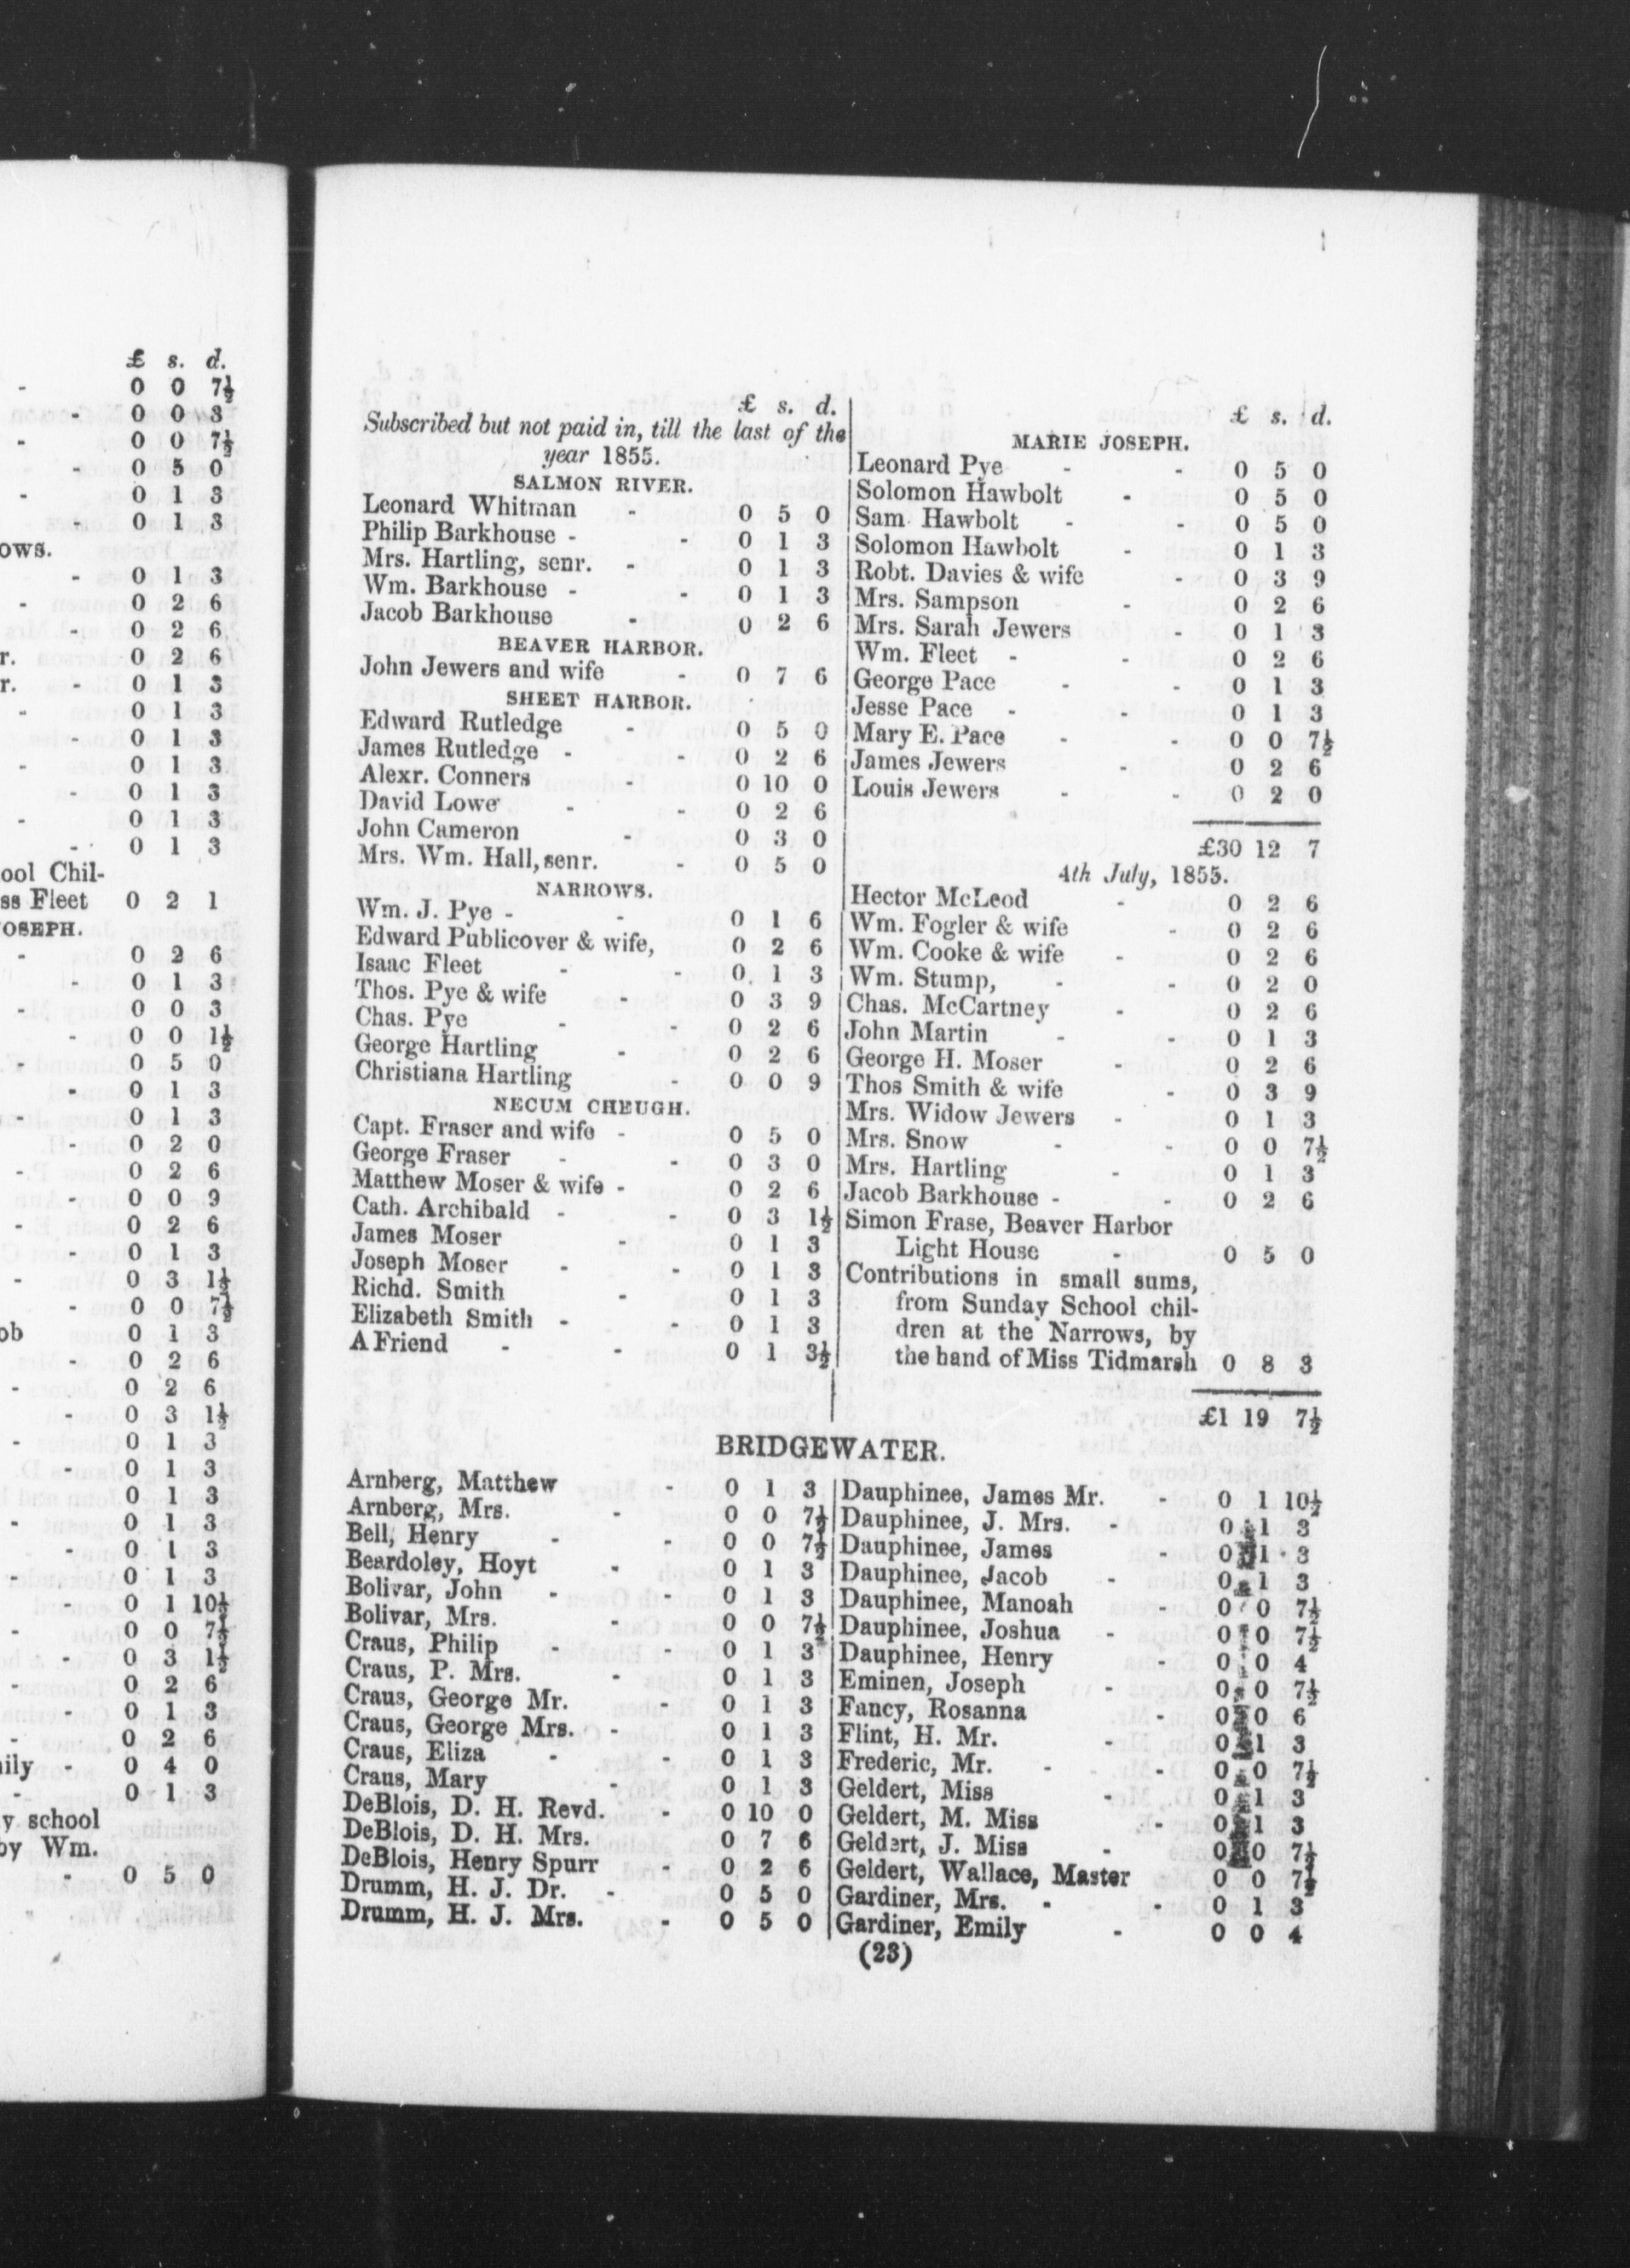 £ s. d.
- 0 0 7½
- 0 0 3
- 0 0 7½
- 0 5 0
- 0 1 3
- 0 1 3
ows.
- 0 1 3
- 0 2 6
- 0 2 6
r. 0 2 6
r. - 0 1 3
- 0 1 3
- 0 1 3
- 0 1 3
- 0 1 3
- 0 1 3
- 0 1 3
ool Chil-
ss Fleet 0 2 1
OSEPH.
- 0 2 6
- 0 1 3
- 0 0 3
- 0 0 1½
- 0 5 0
- 0 1 3
- 0 1 3
- 0 2 0
- 0 2 6
- 0 0 9
- 0 2 6
- 0 1 3
- 0 3 1½
- 0 0 7½
ob 0 1 3
- 0 2 6
- 0 2 6
- 0 3 1½
- 0 1 3
- 0 1 3
- 0 1 3
- 0 1 3
- 0 1 3
- 0 1 3
- 0 1 10½
- 0 0 7½
- 0 3 1½
- 0 2 6
- 0 1 3
- 0 2 6
ily - 0 4 0
- 0 1 3
y school
by Wm.
- 0 5 0
£ s. d.
Subscribed but not paid in, till the last of the
year 1855.
SALMON RIVER.
Leonard Whitman - 0 5 0
Philip Barkhouse - - 0 1 3
Mrs. Hartling, senr. - 0 1 3
Wm. Barkhouse - - 0 1 3
Jacob Barkhouse - 0 2 6
BEAVER HARBOR.
John Jewers and wife - 0 7 6
SHEET HARBOR.
Edward Rutledge - 0 5 0
James Rutledge - - 0 2 6
Alexr. Conners - 0 10 0
David Lowe - - 0 2 6
John Cameron - 0 3 0
Mrs. Wm. Hall, senr. - 0 5 0
NARROWS.
Wm. J. Pye - - 0 1 6
Edward Publicover & wife, 0 2 6
Isaac Fleet - - 0 1 3
Thos. Pye & wife - 0 3 9
Chas. Pye - - 0 2 6
George Hartling - 0 2 6
Christiana Hartling - 0 0 9
NECUM CHEUGH.
Capt. Fraser and wife - 0 5 0
George Fraser - - 0 3 0
Matthew Moser & wife - 0 2 6
Cath. Archibald - - 0 3 1½
James Moser - 0 1 3
Joseph Moser - - 0 1 3
Richd. Smith - 0 1 3
Elizabeth Smith - - 0 1 3
A Friend - - 0 1 3½
£ s. d.
MARIE JOSEPH.
Leonard Pye - - 0 5 0
Solomon Hawbolt - 0 5 0
Sam. Hawbolt - - 0 5 0
Solomon Hawbolt - 0 1 3
Robt. Davies & wife - 0 3 9
Mrs. Sampson - 0 2 6
Mrs. Sarah Jewers - 0 1 3
Wm. Fleet - - 0 2 6
George Pace - - 0 1 3
Jesse Pace - - 0 1 3
Mary E. Pace - - 0 0 7½
James Jewers - 0 2 6
Louis Jewers - - 0 2 0
£30 12 7
4th July, 1855.
Hector McLeod - 0 2 6
Wm. Fogler & wife - 0 2 6
Wm. Cooke & wife - 0 2 6
Wm. Stump, - - 0 2 0
Chas. McCartney - 0 2 6
John Martin - - 0 1 3
George H. Moser - 0 2 6
Thos Smith & wife - 0 3 9
Mrs. Widow Jewers - 0 1 3
Mrs. Snow - - 0 0 7½
Mrs. Hartling - 0 1 3
Jacob Barkhouse - - 0 2 6
Simon Frase, Beaver Harbor
Light House - 0 5 0
Contributions in small sums,
from Sunday School chil-
dren at the Narrows, by
the hand of Miss Tidmarsh 0 8 3
£1 19 7½
BRIDGEWATER.
Arnberg, Matthew - 0 1 3
Arnberg, Mrs. - 0 0 7½
Bell, Henry - - 0 0 7½
Beardoley, Hoyt - 0 1 3
Bolivar, John - - 0 1 3
Bolivar, Mrs. - 0 0 7½
Craus, Philip - - 0 1 3
Craus, P. Mrs. - 0 1 3
Craus, George Mr. - 0 1 3
Craus, George Mrs. - 0 1 3
Craus, Eliza - - 0 1 3
Craus, Mary - 0 1 3
DeBlois, D. H. Revd. - 0 10 0
DeBlois, D. H. Mrs. 0 7 6
DeBlois, Henry Spurr - 0 2 6
Drumm, H. J. Dr. - 0 5 0
Drumm, H. J. Mrs. - 0 5 0
Dauphinee, James Mr. - 0 1 10½
Dauphinee, J. Mrs. - 0 1 3
Dauphinee, James - 0 1 3
Dauphinee, Jacob - 0 1 3
Dauphinee, Manoah - 0 0 7½
Dauphinee, Joshua - 0 0 7½
Dauphinee, Henry - 0 0 4
Eminen, Joseph - 0 0 7½
Fancy, Rosanna - 0 0 6
Flint, H. Mr. - 0 1 3
Frederic, Mr. - - 0 0 7½
Geldert, Miss - 0 1 3
Geldert, M. Miss - 0 1 3
Geldert, J. Miss - 0 0 7½
Geldert, Wallace, Master 0 0 7½
Gardiner, Mrs. - - 0 1 3
Gardiner, Emily - 0 0 4
(23)